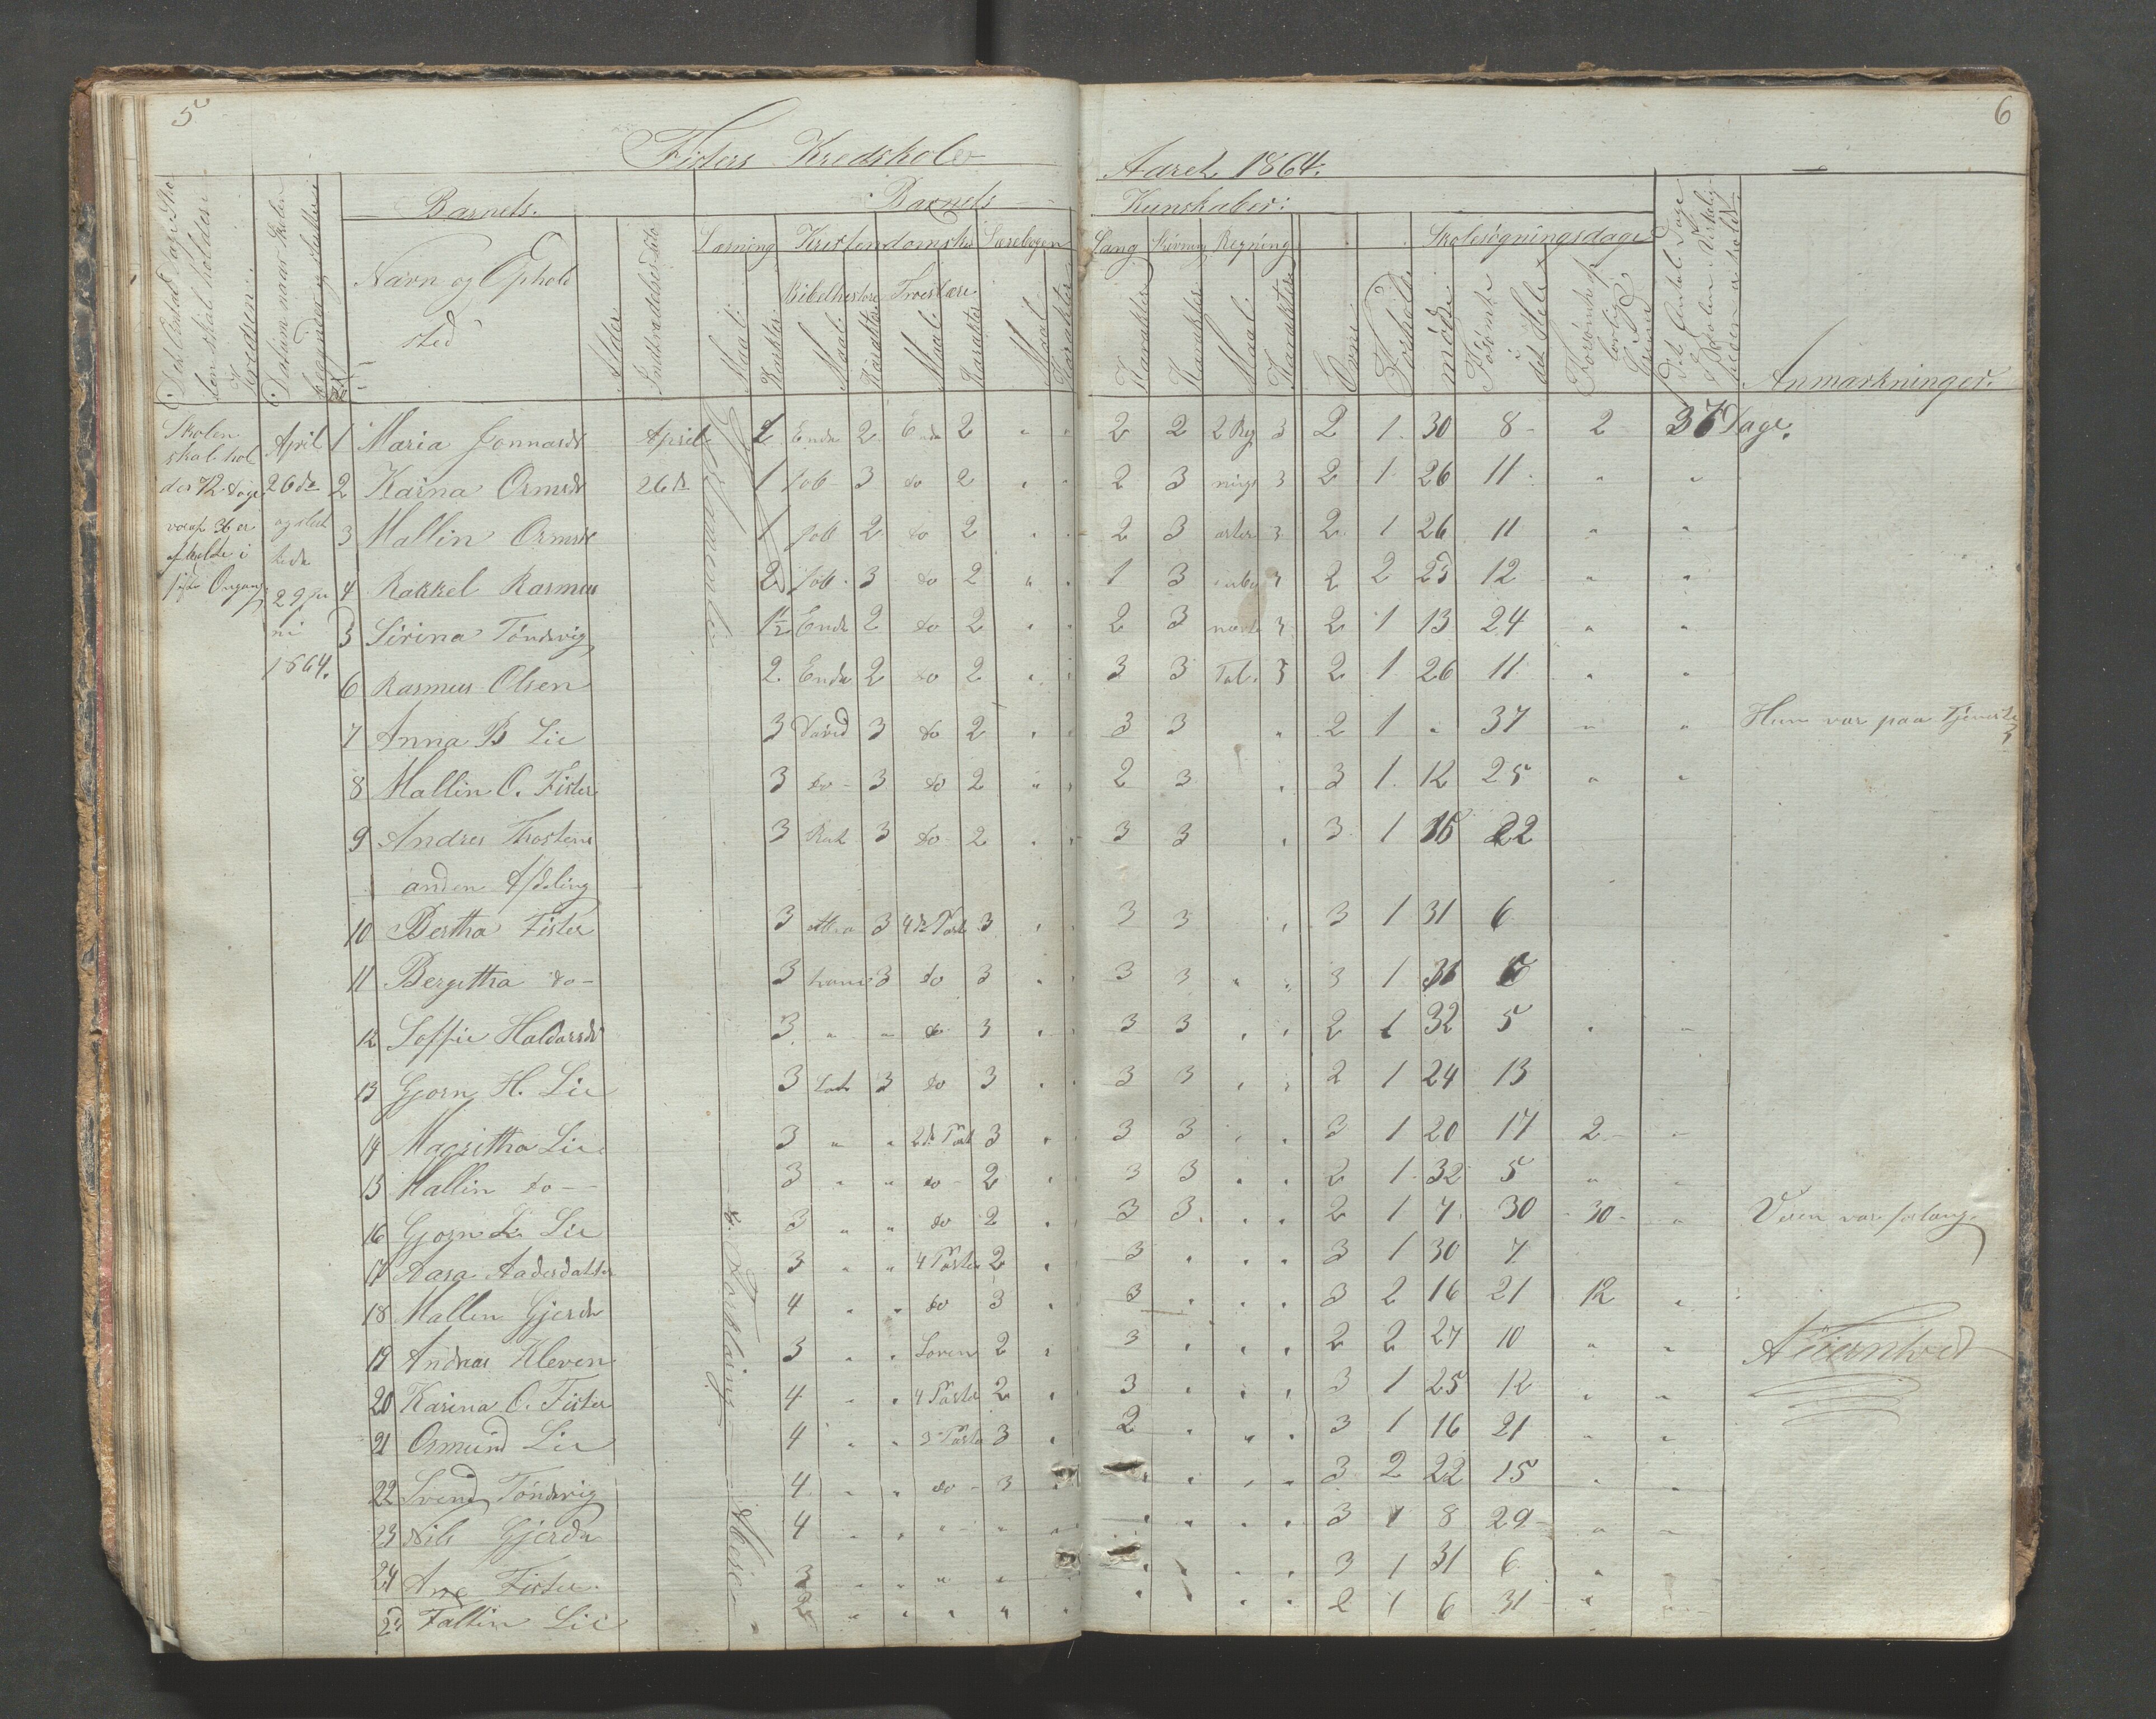 5
6
Fisters Kredskole
Aaret 1864.
Barnets.
Barnets
Kunskaber:
Det Antal Dage Sko-
len skal holdes i
Kredsen.
Datum naar Skolen
begynder og sluttes
Navn og Ophold
sted
Alder
Læsning
Kristendomsk
Lærebogen
Sang
Skrivning
Regning
Skolesøgningsdage
Bibelhistorie
Troeslære
Maal
Karakter
Maal
Karakter
Maal
Karakter
Maal
Karakter
Karakter
Karakter
Maal
Karakter
Evne
Forhold
mødte
Forsømte
det Hele
Forsømte af
lovlig
Grund
Det Antal Dage
Skolen Virkelig
Anmærkninger.
Skolen April 1 Maria Jonnasdr April 2 Ende 2 Ende 2 " " 2 2 2 Reg 3 2 1 30 8 2 37 Dage.
skal hol
des 72 dage 26de 2 Karina Ormsdr 26de 1 Job 3 do 2 " " 2 3 nings 3 2 1 26 11 " "
voraf 36 er og slut 3 Mallin Ormsdr 1 Job 2 do 2 " " 2 3 arter 3 2 1 26 11 " "
afholdte i tede
første Omgang 29 ju 4 Rakkel Rasmus 2 Job 3 do 2 " " 1 3 2 2 25 12 " "
ni 5 Sirina Tøndevig 1½ Ende 2 do 2 " " 2 3 3 2 1 13 24 " "
1864. 6 Rasmus Olsen 2 Ende 2 do 2 " " 3 3 Tal 3 2 1 26 11 " "
7 Anna B Lie 3 David 3 do 2 " " 3 3 " 2 1 " 37 " " Hun var paa Tjeneste
8 Mallin O. Fister 3 do 3 do 2 " " 2 3 " 3 1 12 25 " "
9 Andres Throstens 3 Rut 3 do 2 " " 3 3 " 3 1 15 22
anden Afdeling
10 Bertha Fister 3 3 4de Part 3 " " 3 3 " 3 1 31 6
11 Bergitha do 3 3 do 3 " " 3 3 " " 3 1 31 6
12 Soffie Haldorsdr 3 " " do 3 " 3 3 " " 2 1 32 5 " "
13 Gjorn H. Lie 3 3 do 3 " " 3 3 " " 2 1 24 13
14 Magritha Lie 3 " " 2de Part 3 " " 3 3 " " 3 1 20 17 2 "
15 Mallin do 3 " " do 2 " " 3 3 " " 2 1 32 5 " "
16 Gjorn L. Lie 3 " " do 2 " 3 3 " " 2 1 7 30 30 " Veien var forlang
17 Aasa Aadesdatter 3 " " 4 Parter 2 " 3 " " " 3 1 30 7
18 Mallen Gjerde 4 " " do 3 " 3 " " " 3 2 16 21 12 "
19 Andreas Kleven 3 " " Loven 2 " 3 " " " 2 2 27 10 " "
20 Karina O. Fister 4 " " 4 Parter 2 " 3 " " " 3 1 25 12 " "
21 Osmund Lie 4 " " 3 Parter 3 " 2 " " " 3 1 16 21 " "
22 Svend Tøndevig 4 " " do 3 " " " " 3 2 22 15 " "
23 Nils Gjerde 4 " " " " " " " " " 3 1 8 29 " "
24 Ane Fister 3 " " " " " " " " 3 1 31 6 "
25 Tallin Lie 2 " " " " " " " " 2 1 6 31 " "